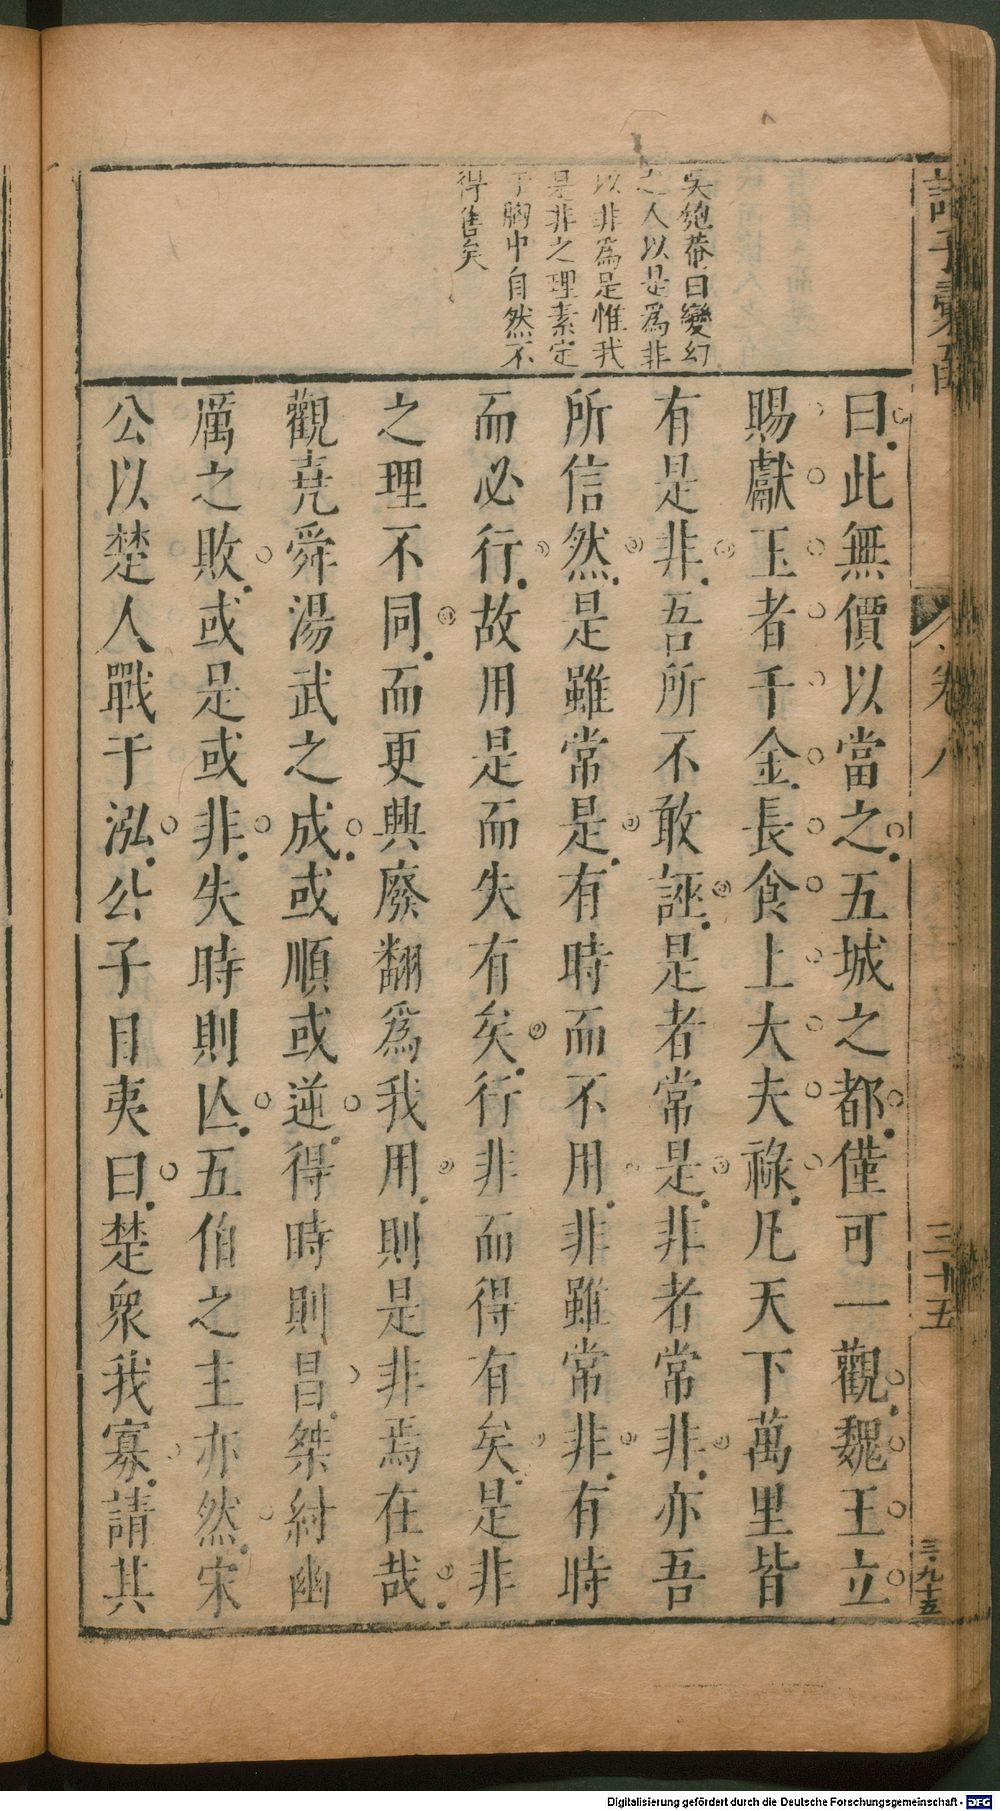 吳匏菴曰變幻
之人以是爲非
以非爲是惟我
是非之理素定
于胸中自然不
得售矣
曰此無價以當之五城之都僅可一觀魏王立
賜獻玉者千金長食上大夫祿凡天下萬里皆
有是非吾所不敢誣是者常是非者常非亦吾
所信然是雖常是有時而不用非雖常非有時
而必行故用是而失有矣行非而得有矣是非
之理不同而更興廢翻爲我用則是非焉在哉
觀堯舜湯武之成或順或逆得時則昌桀紂幽
厲之敗或是或非失時則亾五伯之主亦然宋
公以楚人戰于泓公子目夷曰楚衆我寡請其
卷八
三十五
三九十五
Digitalisierung gefördert durch die Deutsche Forschungsgemeinschaft - DFG